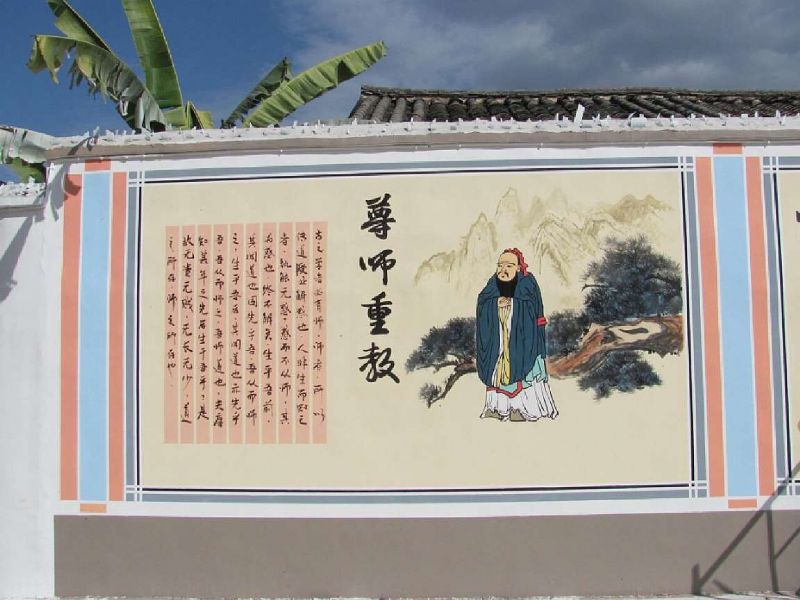 尊师重教
古之学者必有师。师者，所以
传道授业解惑也。人非生而知之
者，孰能无惑？惑而不从师，其
为惑也，终不解矣。生乎吾前，
其闻道也固先乎吾，吾从而师
之；生乎吾后，其闻道也亦先乎
吾，吾从而师之。吾师道也，夫庸
知其年之先后生于吾乎？是
故无贵无贱，无长无少，道
之所存，师之所存也。